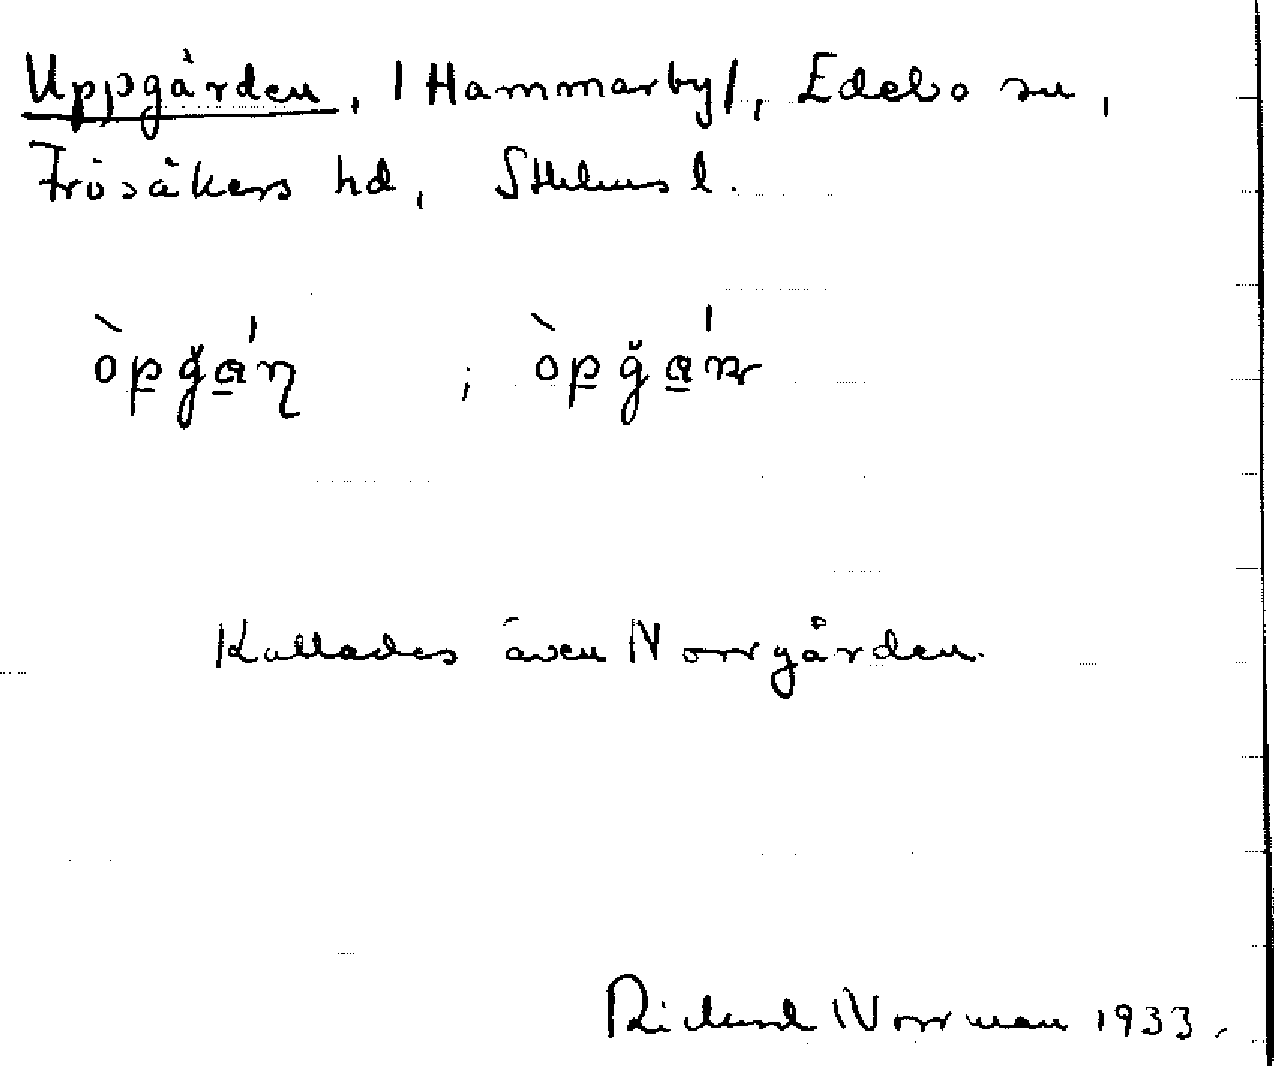 Uppgården, /Hammarby/, Edebo sn,
Frösåkers hd, Sthlms l.
òpğa̲'η ; òpğa̲'nr
Kallades även Norrgården.
Rickard Norrman 1933.